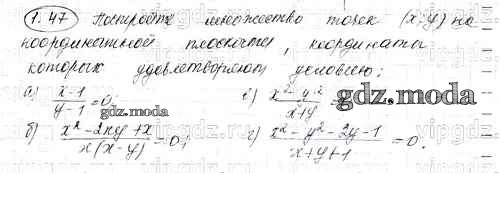 1.47 Постройте множество точек (x;y) на
координатной плоскости, координаты
которых удовлетворяют условию:
а) (x-1)/(y-1) =0; в) (x²-y²)/(x+y) =
б) (x²-2xy+x)/(x(x-y)) =0; г) (x²-y²-2y-1)/(x+y+1) =0.
gdz.moda
gdz.moda